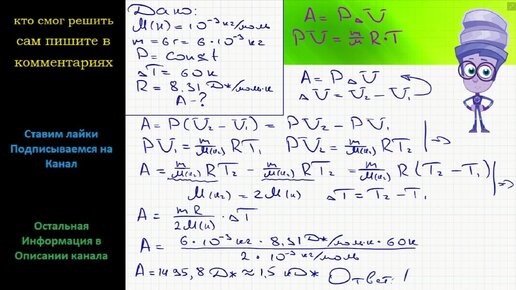 кто смог решить
сам пишите в
комментариях
Ставим лайки
Подписываемся на
Канал
Остальная
Информация в
Описании канала
Дано:
M(н) = 10⁻³ кг/моль
m = 6г = 6·10⁻³ кг
P = const
ΔT = 60K
R = 8,31 Дж/моль·К
A - ?
A = PΔU
PU = m/M R·T
A = PΔU
ΔU = U₂ - U₁
A = P(U₂ - U₁) = PU₂ - PU₁
PU₁ = m/M(н₂) RT₁ PU₂ = m/M(н₂) RT₂ |⇒
A = m/M(н₂) RT₂ - m/M(н₂) RT₁ = m/M(н₂) R (T₂ - T₁)
M(н₂) = 2M(н) ΔT = T₂ - T₁ |⇒
A = mR/2M(н) · ΔT
A = 6·10⁻³ кг · 8,31 Дж/моль·К · 60К / 2·10⁻³ кг/моль
A = 1495,8 Дж ≈ 1,5 кДж Ответ!